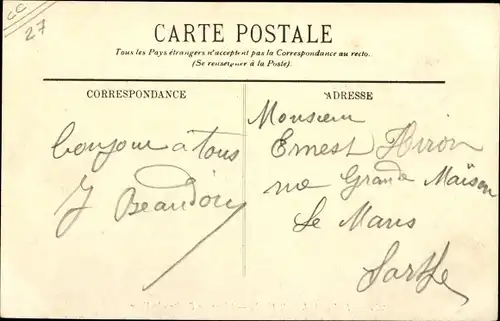 CC
27
CARTE POSTALE
Tous les Pays étrangers n'acceptent pas la Correspondance au recto.
(Se renseigner à la Poste).
CORRESPONDANCE
bonjour à tous
J Beaudoin
ADRESSE
Monsieur
Ernest Hiron
rue Grande Maison
Le Mans
Sarthe